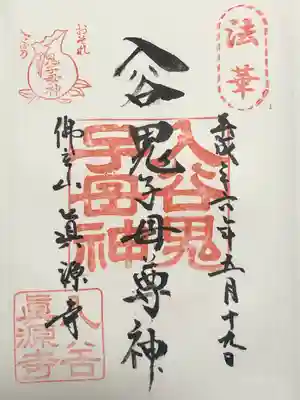 法華
平成年五月十九日
入谷鬼
子母神
入谷
鬼子母尊神
おそれ
鬼子母神
佛立山 眞源寺
入谷
眞源寺